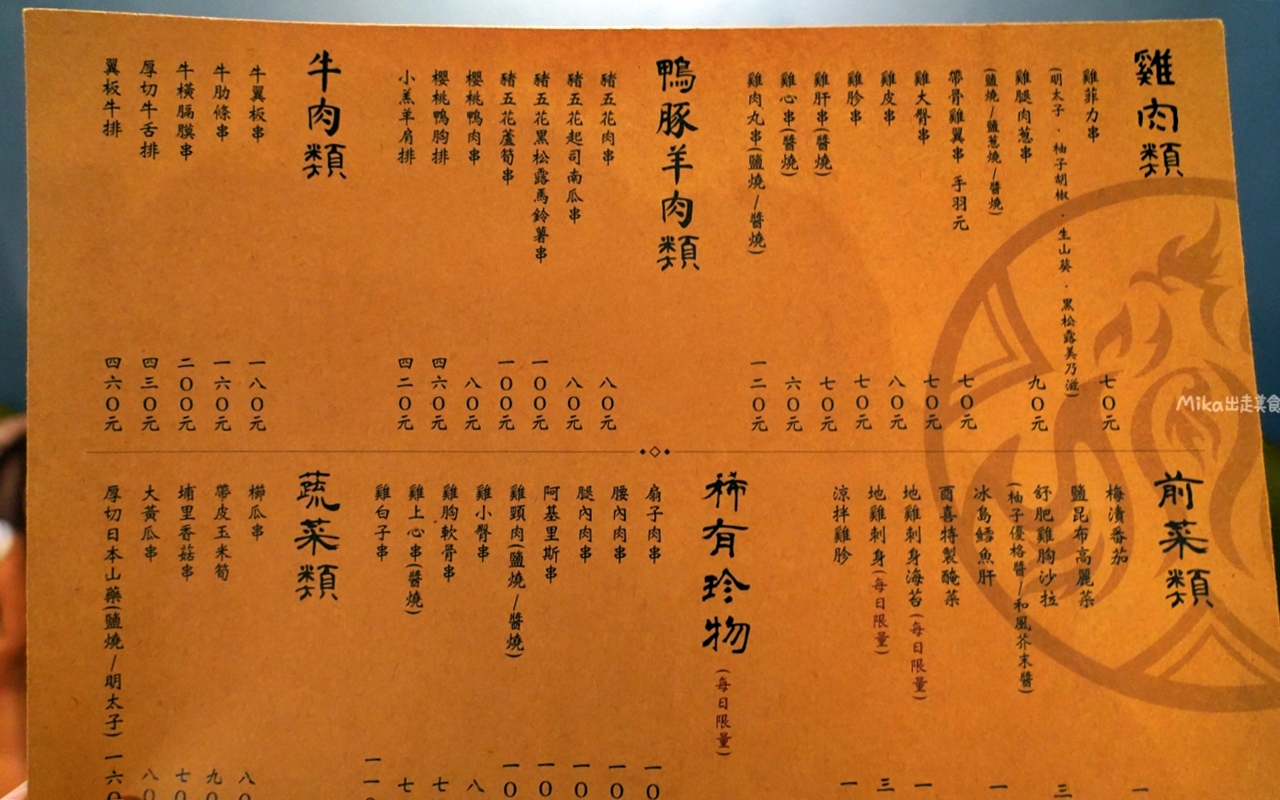 雞肉類
雞菲力串 七〇元
(明太子．柚子胡椒．生山葵．黑松露美乃滋)
雞腿肉蔥串 九〇元
(鹽燒/鹽蔥燒/醬燒)
帶骨雞翼串 手羽元 七〇元
雞大臀串 七〇元
雞皮串 八〇元
雞胗串 七〇元
雞肝串(醬燒) 七〇元
雞心串(醬燒) 六〇元
雞肉丸串(鹽燒/醬燒) 一二〇元
鴨豚羊肉類
豬五花肉串 八〇元
豬五花起司南瓜串 八〇元
豬五花黑松露馬鈴薯串 一〇〇元
豬五花蘆筍串 一〇〇元
櫻桃鴨肉串 八〇元
櫻桃鴨胸排 四六〇元
小羔羊肩排 四二〇元
牛肉類
牛翼板串 一八〇元
牛肋條串 一六〇元
牛橫膈膜串 二〇〇元
厚切牛舌排 四三〇元
翼板牛排 四六〇元
前菜類
梅漬番茄 一
鹽昆布高麗菜
舒肥雞胸沙拉 三
(柚子優格醬/和風芥末醬)
冰島鱈魚肝 一
酉喜特製醃菜
地雞刺身海苔(每日限量) 一
地雞刺身(每日限量) 三
涼拌雞胗 一
稀有珍物
(每日限量)
扇子肉串 一〇
腰內肉串 一〇
腿內肉串 一〇
阿基里斯串 一〇
雞頸肉(鹽燒/醬燒) 一〇
雞小臀串 八
雞胸軟骨串 七
雞上心串(醬燒) 七
雞白子串 一一
蔬菜類
櫛瓜串 八〇
帶皮玉米筍 九〇
埔里香菇串 七〇
大黃瓜串 八〇
厚切日本山藥(鹽燒/明太子) 一六〇
Mika出走美食